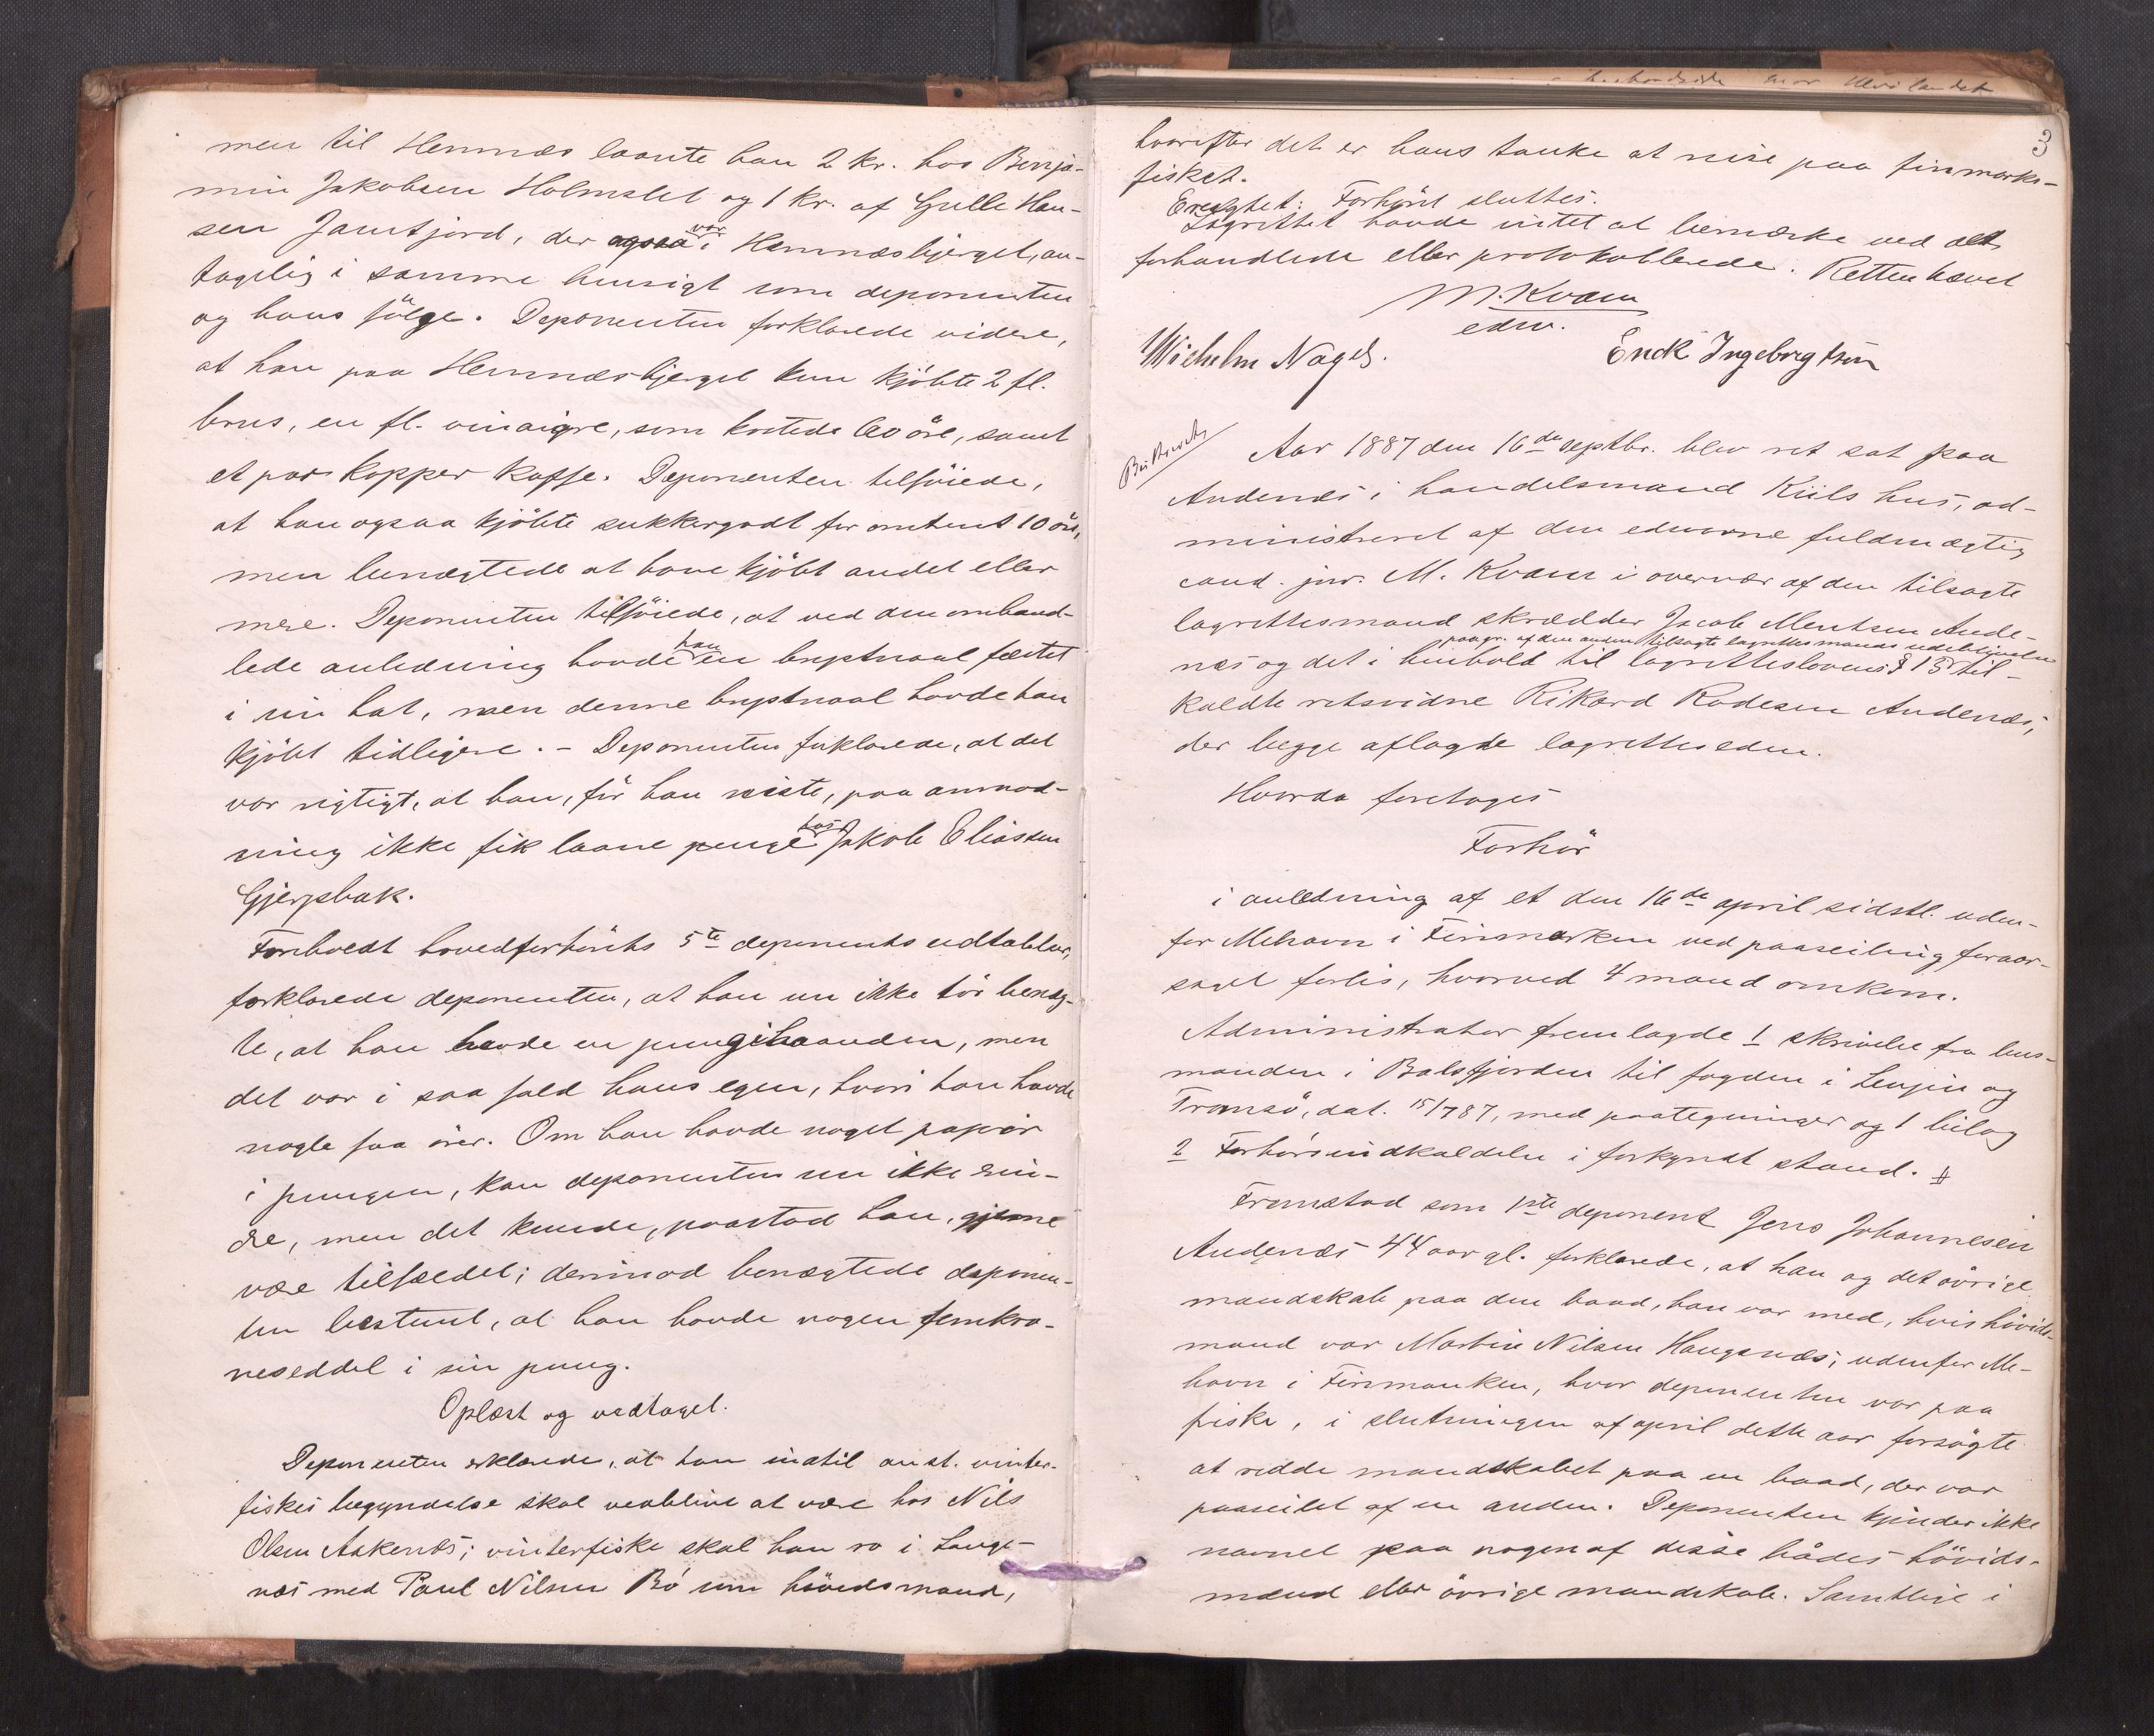 men til Hemnæs laante han 2 kr. hos Benja-
min Jakobsen Holmslet og 1 kr. af Gulle Han-
sen Jamtjord, der ogsaa var i Hemnæsbjerget, an-
tagelig i samme hensigt som deponenten
og hans følge. Deponenten forklarede videre,
at han paa Hemnæsbjerget kun kjøbte 2 fl.
brus, en fl. vinaigre, som kostede 60 øre, samt
et par kopper kaffe. Deponenten tilføiede,
at han ogsaa kjøbte sukkergodt for omtrent 10 øre,
men benægtede at have kjøbt andet eller
mere. Deponenten tilføiede, at ved den omhand-
lede anledning havde han en brystnaal fæstet
i sin hat, men denne brystnaal havde han
kjøbt tidligere. - Deponenten forklarede, at det
var rigtigt, at han, før han reiste, paa anmod-
ning ikke fik laane penge hos Jakob Eliassen
Gjerpbak.
Foreholdt hovedforhørets 5te deponents udtalelser,
forklarede deponenten, at han nu ikke tør benæg-
te, at han havde en pung i haanden, men
det var i saa fald hans egen, hvori han havde
nogle faa ører. Om han havde noget papir
i pungen, kan deponenten nu ikke erin-
dre, men det kunde, paastod han, gjerne
være tilfældet; derimod benægtede deponen-
ten bestemt, at han havde nogen femkro-
neseddel i sin pung.
Oplæst og vedtaget.
Deponenten erklærede, at han indtil anst. vinter-
fiskes begyndelse skal vedblive at være hos Nils
Olsen Aakenæs; vinterfiske skal han ro i Lange-
næs med Paul Nilsen Bø som høvedsmand,
3
hvorefter det er hans tanke at reise paa finmarks-
fisket.
Eragtet: Forhøret sluttes.
Lagrettet havde intet at bemærke ved det
forhandlede eller protokollerede. Retten hævet
M. Kvam
edsv.
Wichelm Nagel. Erick Ingebrigtsen
Aar 1887 den 16de septbr. blev ret sat paa
Andenæs i handelsmand Kiils hus, ad-
ministreret af den edsvorne fuldmægtig
cand. jur. M. Kvam i overvær af den tilsagte
lagrettesmand skrædder Jacob Mentsen Ande-
paa gr. af den anden tilsagte lagrettesmands udeblivelse
næs og det i henhold til lagretteslovens § 15 til-
kaldte retsvidne Rikard Rodesen Andenæs,
der begge aflagde lagretteseden.
Hvorda foretoges
Forhør
i anledning af et den 16de april sidstl. uden-
for Mehavn i Finmarken ved paaseiling foraar-
saget forlis, hvorved 4 mand omkom.
Administrator fremlagde 1 skrivelse fra lens-
manden i Balsfjorden til fogden i Senjen og
Tromsø, dat. 15/7 87, med paategninger og 1 bilag
2 Forhørsindkaldelse i forkyndt stand.
Fremstod som 1ste deponent Jens Johannesen
Andenæs 44 aar gl. forklarede, at han og det øvrige
mandskab paa den baad, han var med, hvis høvids-
mand var Martin Nilsen Haugsnæs, udenfor Me-
havn i Finmarken, hvor deponenten var paa
fiske, i slutningen af april dette aar forsøgte
at redde mandskabet paa en baad, der var
paaseilet af en anden. Deponenten kjender ikke
navnet paa nogen af disse bådes høvids-
mænd eller øvrige mandskab. Samtlige i